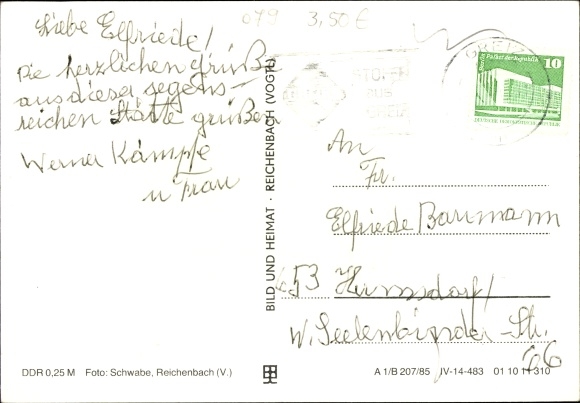 079 3,50 €
Liebe Elfriede!
Die herzlichen Grüße
aus dieser segens-
reichen Stätte grüßen
Werner Kämpfe
u Frau
BILD UND HEIMAT · REICHENBACH (VOGTL)
GREIZ
STOFFE
AUS
GREIZ
Palast der Republik
10
An
Fr.
Elfriede Baumann
653 Hermsdorf/
W. Seelenbinder-Str.
66
DDR 0,25 M Foto: Schwabe, Reichenbach (V.)
A 1/B 207/85 IV-14-483 01 10 11 310